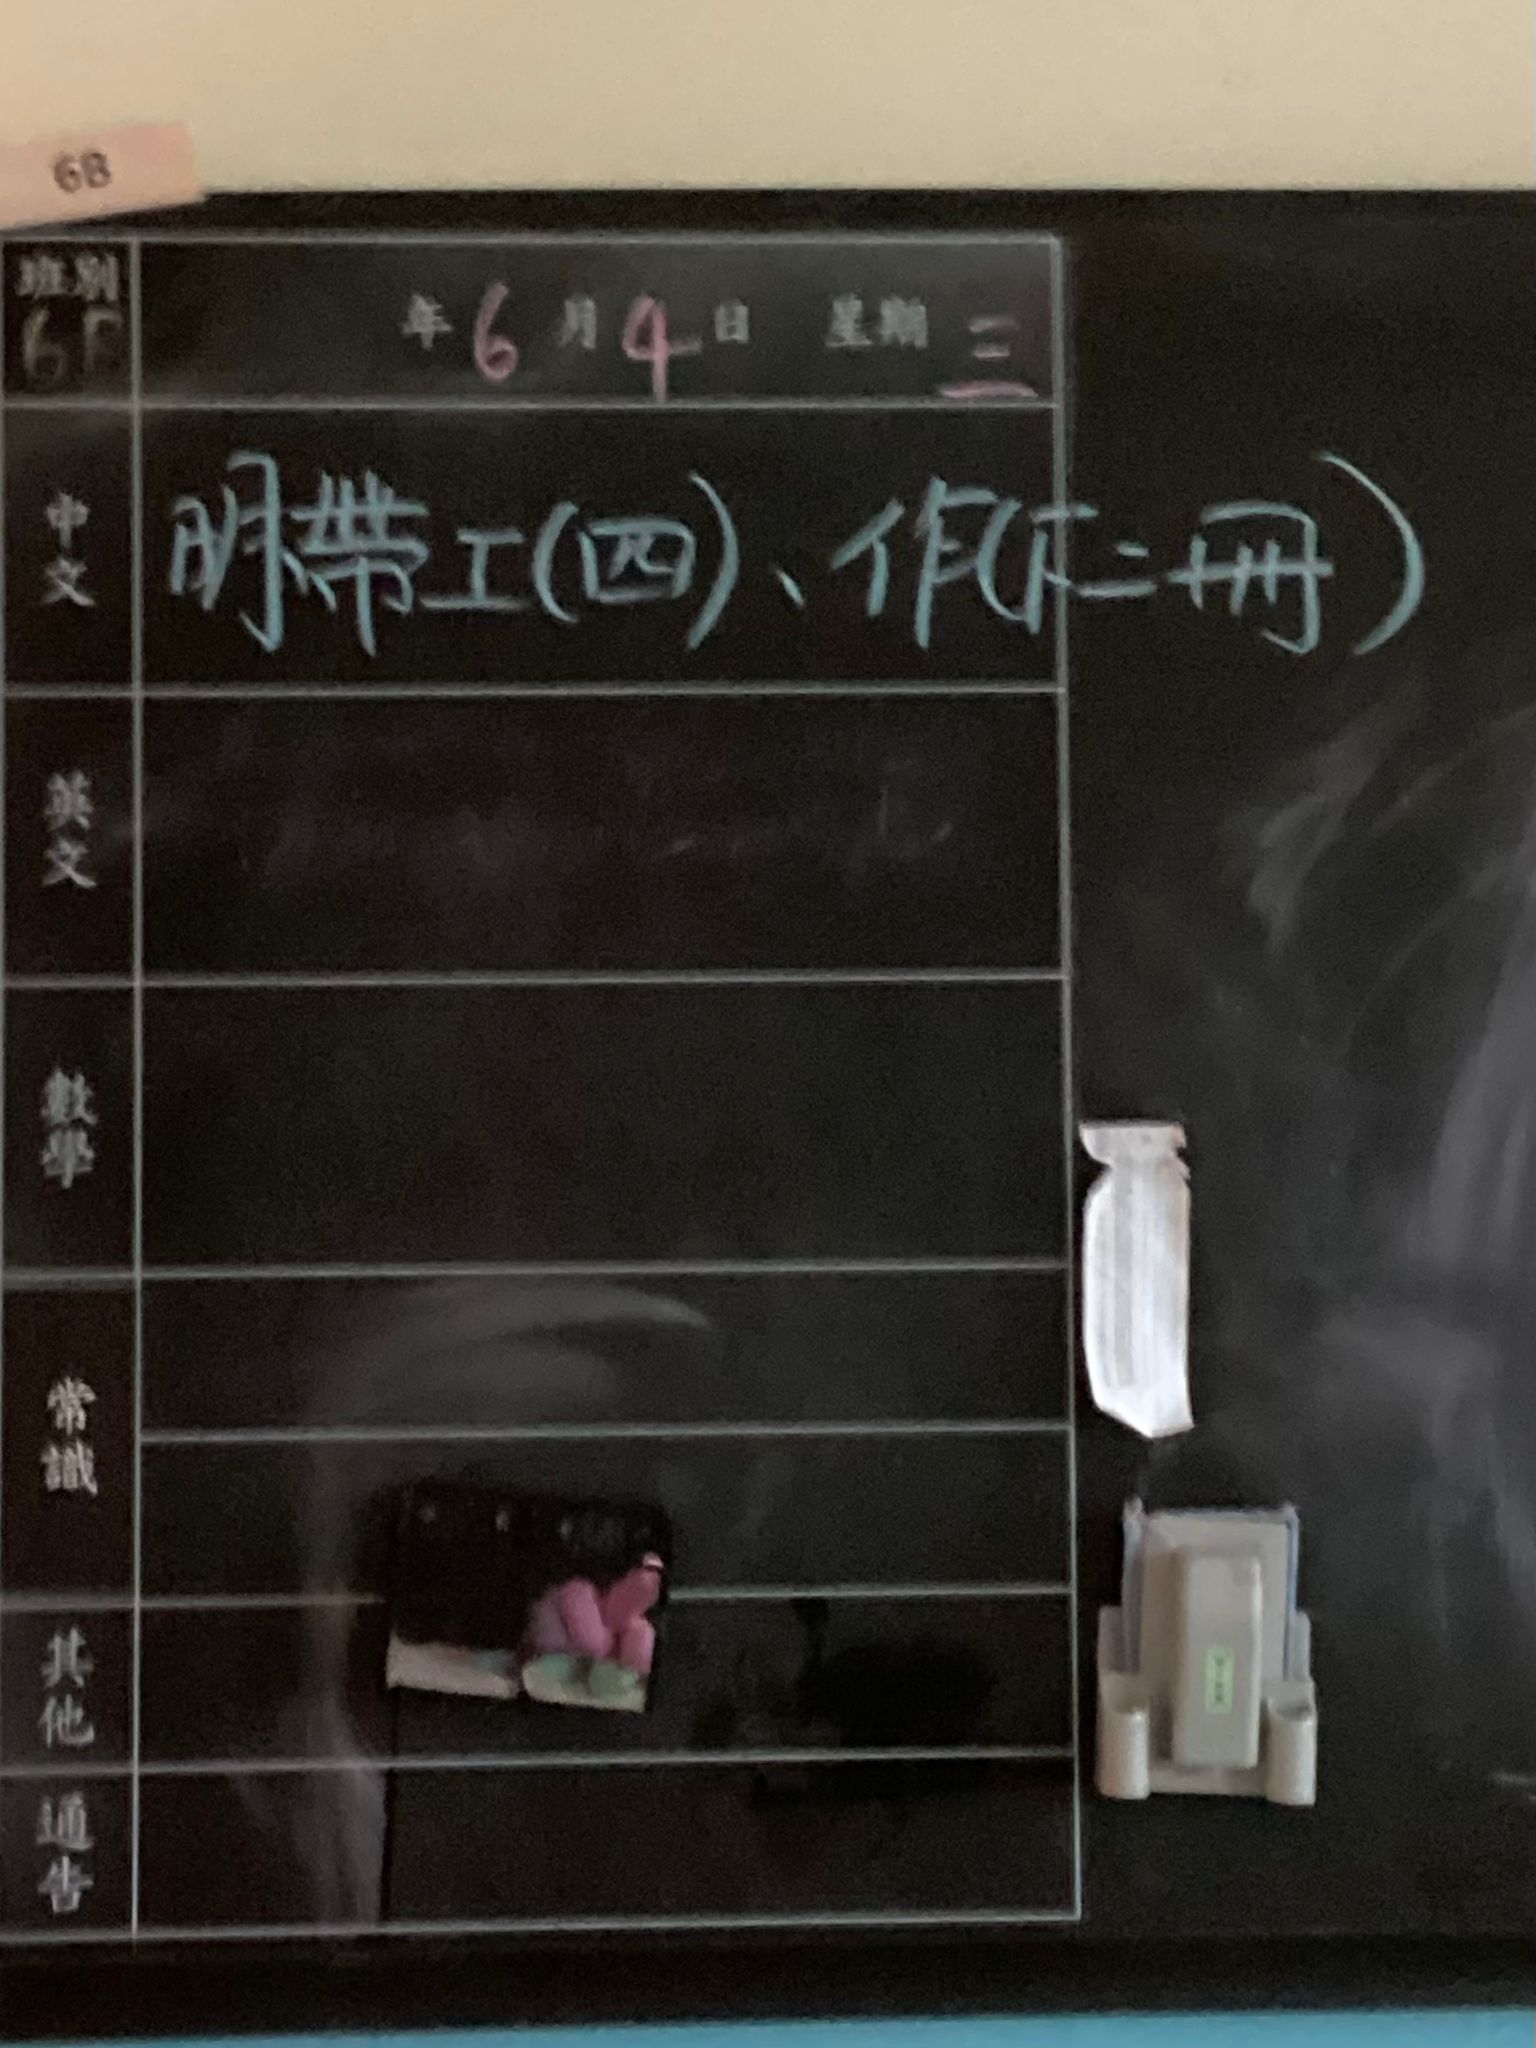 6B
班別 年 6 月 4 日 星期 三
中文 明帶工(四)、作(下二冊)
英文
數學
常識
其他
通告